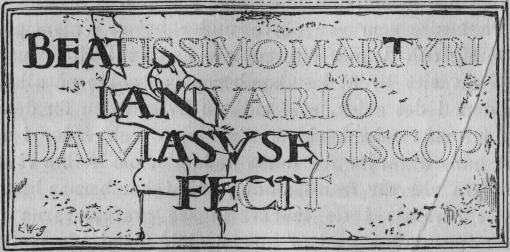 BEATISSIMOMARTYRI
IANVARIO
DAMASVSEPISCOP
FECIT